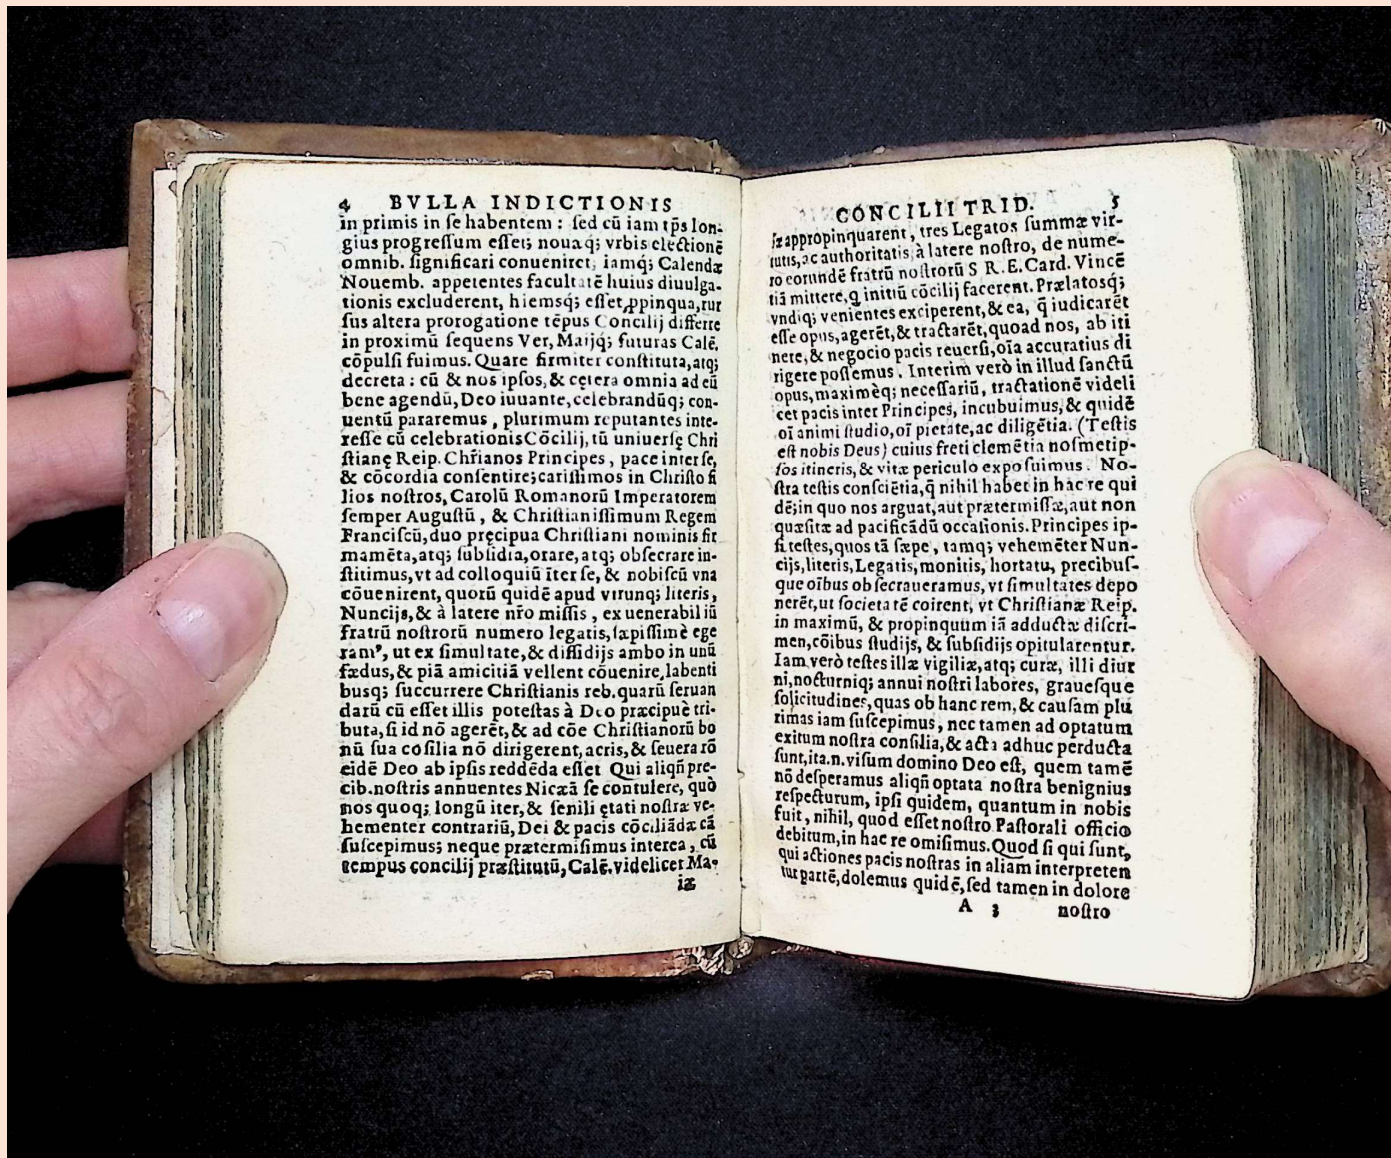 4 BVLLA INDICTIONIS
in primis in se habentem : sed cū iam tp̄s lon-
gius progressum esset; nouaq; vrbis electionē
omnib. significari conueniret; iamq; Calendæ
Nouemb. appetentes facultatē huius diuulga-
tionis excluderent, hiemsq; esset ꝓpinqua, rur
sus altera prorogatione tēpus Concilij differre
in proximū sequens Ver, Maijq; futuras Calē.
cōpulsi fuimus. Quare firmiter constituta, atq;
decreta : cū & nos ipsos, & cętera omnia ad eū
bene agendū, Deo iuuante, celebrandūq; con-
uentū pararemus , plurimum reputantes inte-
resse cū celebrationis Cōcilij, tū uniuersę Chri
stianę Reip. Chr̄ianos Principes , pace inter se,
& cōcordia consentire; carissimos in Christo fi
lios nostros, Carolū Romanorū Imperatorem
semper Augustū , & Christianissimum Regem
Franciscū, duo pręcipua Christiani nominis fir
mamēta, atq; subsidia, orare, atq; obsecrare in-
stitimus, vt ad colloquiū īter se, & nobiscū vna
cōuenirent, quorū quidē apud vtrunq; literis,
Nuncijs, & à latere nr̄o missis , ex uenerabiliū
fratrū nostrorū numero legatis, sæpissimè ege
ramꝰ, ut ex simultate, & dissidijs ambo in unū
fædus, & piā amicitiā vellent cōuenire, labenti
busq; succurrere Christianis reb. quarū seruan
darū cū esset illis potestas à Deo præcipuè tri-
buta, si id nō agerēt, & ad cōe Christianorū bo
nū sua cōsilia nō dirigerent, acris, & seuera rō
eidē Deo ab ipsis reddēda esset Qui aliqn̄ pre-
cib. nostris annuentes Nicæā se contulere, quò
nos quoq; longū iter, & senili ętati nostræ ve-
hementer contrariū, Dei & pacis cōciliādæ cā
suscepimus; neque prætermisimus interea , cū
tempus concilij præstitutū, Calē. videlicet Ma-
iæ
CONCILII TRID. 5
iæ appropinquarent , tres Legatos summæ vir-
tutis, ac authoritatis, à latere nostro, de nume-
ro eorundē fratrū nostrorū S R. E. Card. Vincē
tiā mittere, q̄ initiū cōcilij facerent. Prælatosq;
vndiq; venientes exciperent, & ea, q̄ iudicarēt
esse opus, agerēt, & tractarēt, quoad nos, ab iti
nere, & negocio pacis reuersi, oīa accuratius di
rigere possemus . Interim verò in illud sanctū
opus, maximèq; necessariū, tractationē videli
cet pacis inter Principes, incubuimus, & quidē
oī animi studio, oī pietate, ac diligētia. (Testis
est nobis Deus) cuius freti clemētia nosmetip-
sos itineris, & vitæ periculo exposuimus . No-
stra testis consciētia, q̄ nihil habet in hac re qui
dē; in quo nos arguat, aut prætermissæ, aut non
quæsitæ ad pacificādū occasionis. Principes ip-
si testes, quos tā sæpe , tamq; vehemēter Nun-
cijs, literis, Legatis, monitis, hortatu, precibus-
que oībus obsecraueramus, vt simultates depo
nerēt, ut societatē coirent, vt Christianæ Reip.
in maximū, & propinquum iā adductæ discri-
men, cōibus studijs, & subsidijs opitularentur.
Iam verò testes illæ vigiliæ, atq; curæ, illi diur
ni, nocturniq; annui nostri labores, grauesque
solicitudines, quas ob hanc rem, & causam plu
rimas iam suscepimus , nec tamen ad optatum
exitum nostra consilia, & acta adhuc perducta
sunt, ita .n. visum domino Deo est, quem tamē
nō desperamus aliqn̄ optata nostra benignius
respecturum, ipsi quidem, quantum in nobis
fuit , nihil, quod esset nostro Pastorali officio
debitum, in hac re omisimus. Quod si qui sunt,
qui actiones pacis nostras in aliam interpreten
tur partē, dolemus quidē, sed tamen in dolore
A 3 nostro